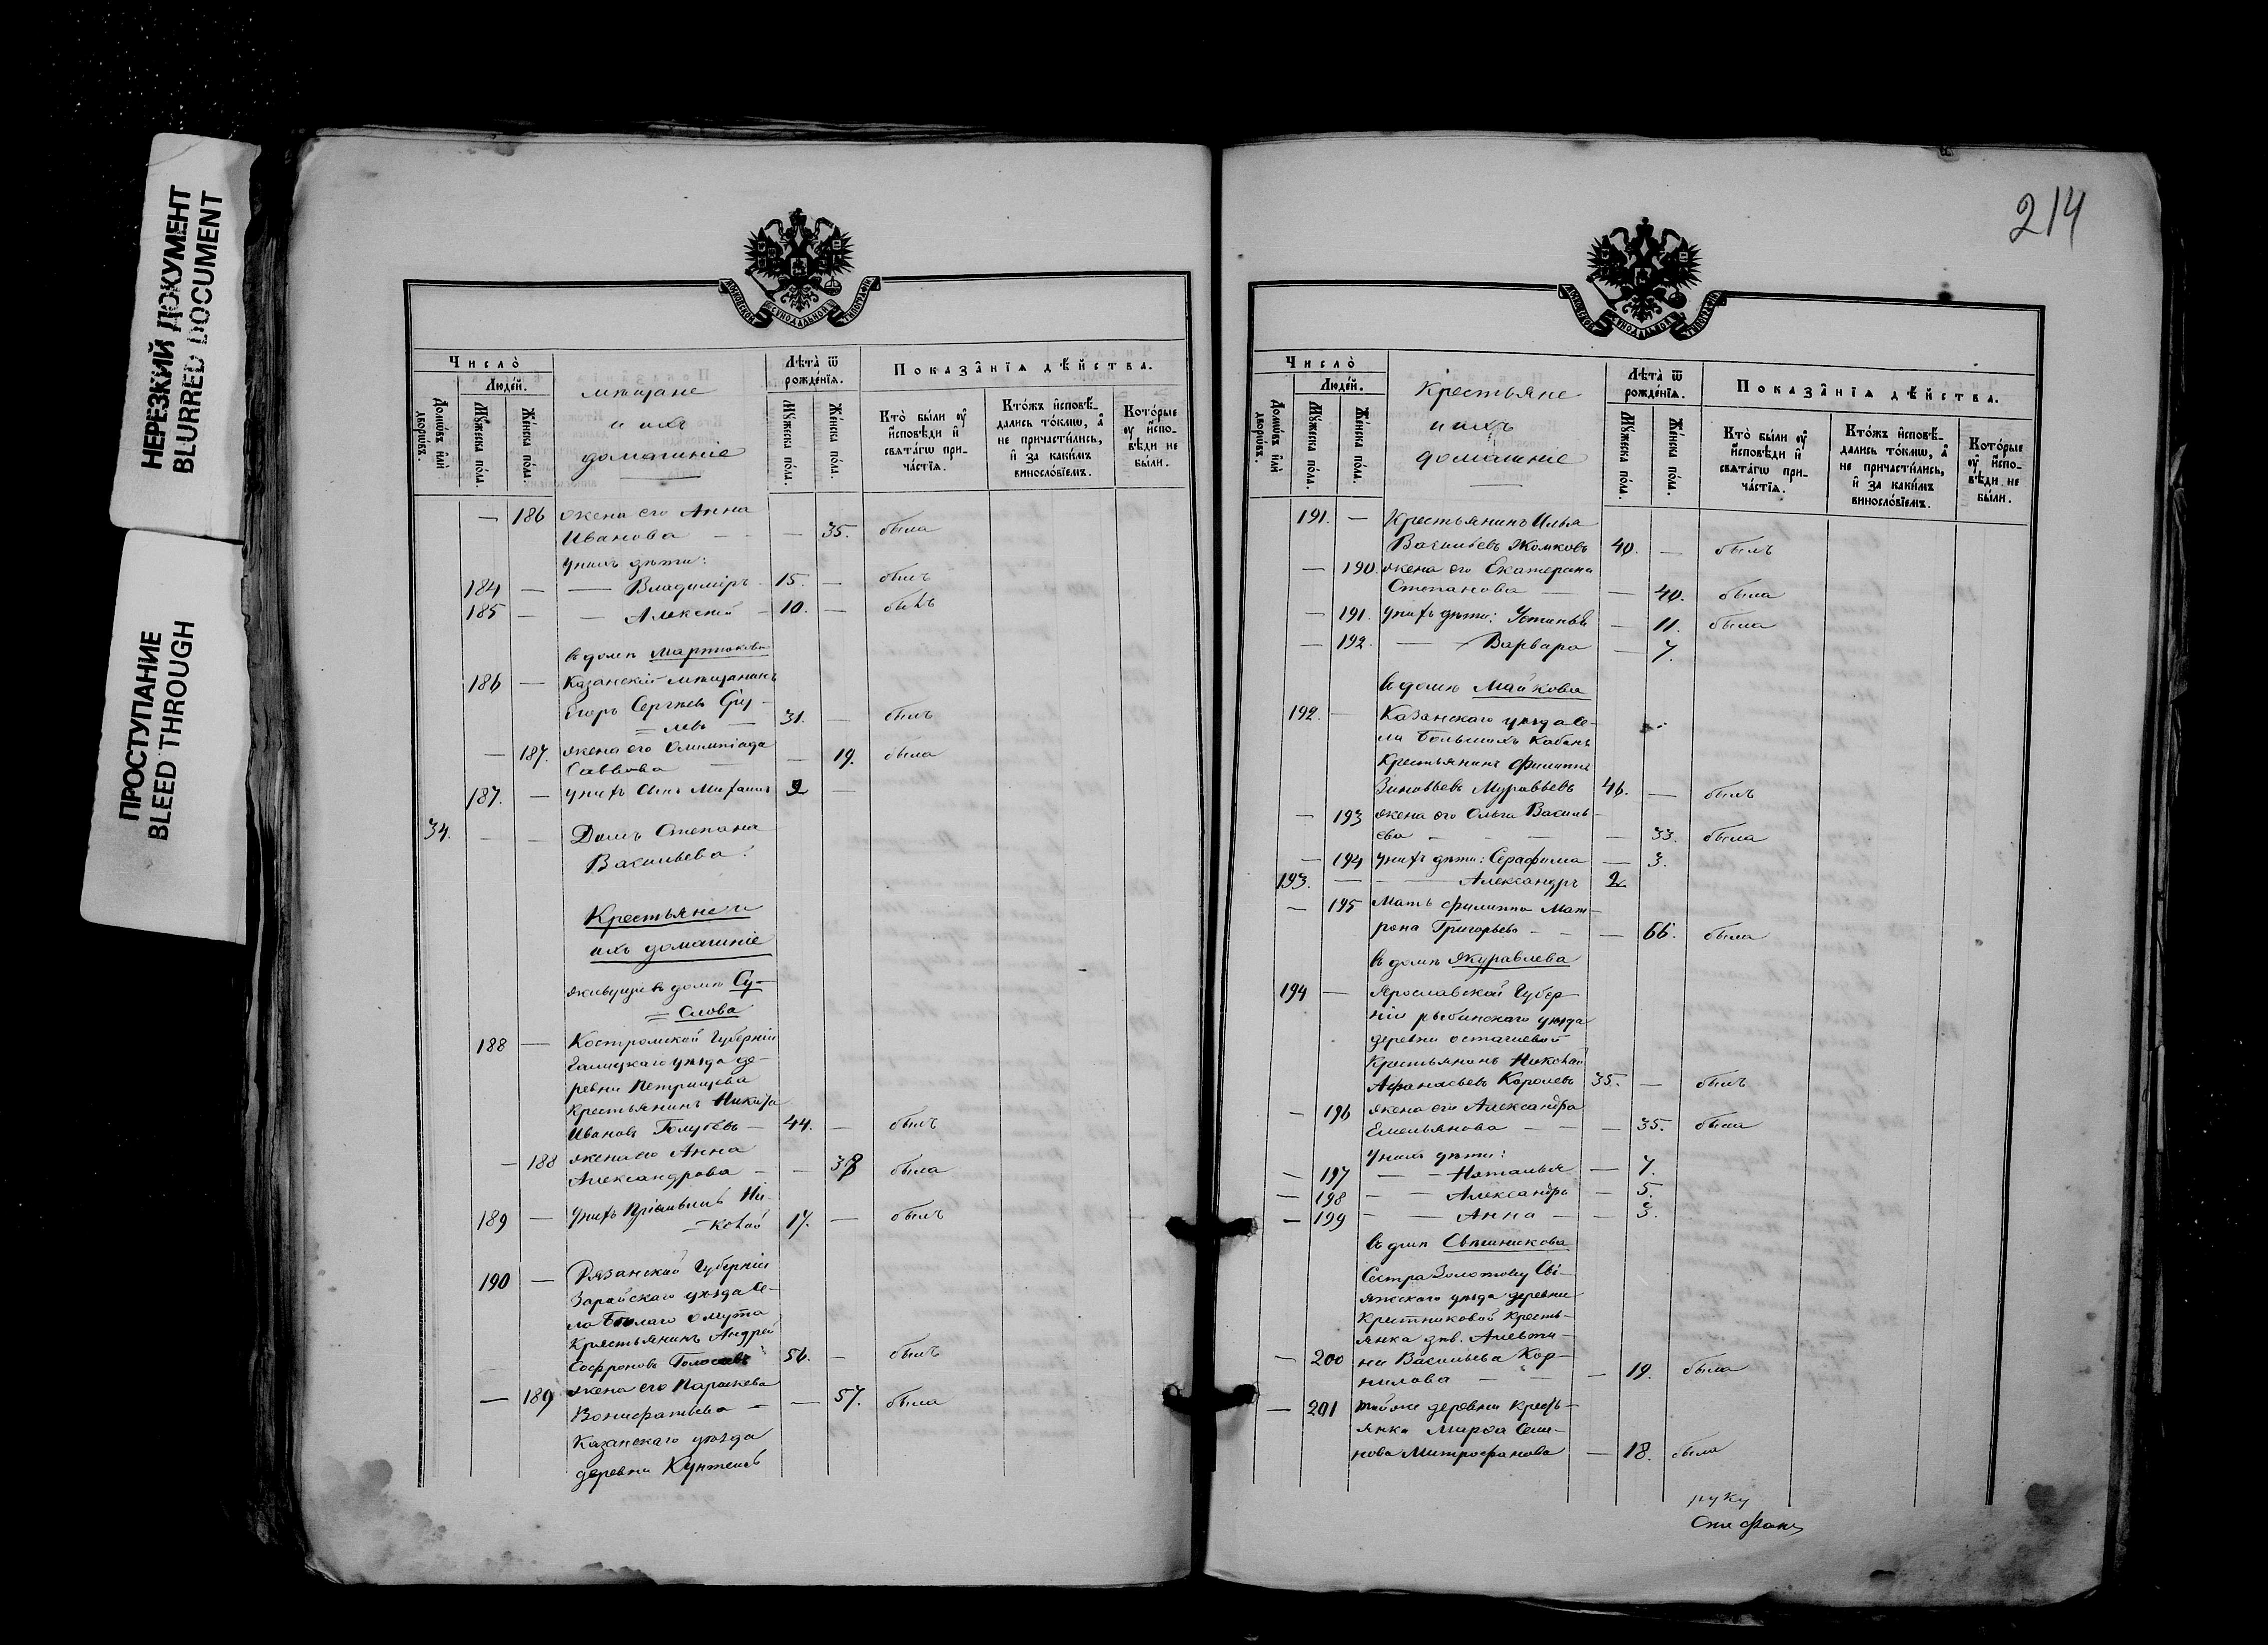 НЕРЕЗКИЙ ДОКУМЕНТ
BLURRED DOCUMENT
ПРОСТУПАНИЕ
BLEED THROUGH
МОСКОВСКОЙ СУНОДАЛЬНОЙ ТИПОГРАФІИ
Число̀
Людей.
Домѡвъ илѝ дворѡвъ.
Мꙋжеска пола.
Женска пола.
мѣщане
и ихъ
домашніе
Лѣта̀ ѿ рожденїѧ.
Мꙋжеска пола.
Женска пола.
Показанїѧ дѣйства.
Кто̀ были оу҆ исповѣди и҆ свѧтагѡ причастїѧ.
Кто́жъ исповѣдались то́кмѡ, а҆ не причастились, и҆ за каки́мъ винословїемъ.
Которые оу҆ исповѣди не были.
— 186 жена его Анна
Иванова — — 35. была
У нихъ дѣти:
184 — — Владиміръ 15. — былъ
185 — — Алексѣй — 10. — былъ
въ домѣ Мартюкова
186 — Казанскій мѣщанинъ
Егоръ Сергѣевъ
= левъ — 31. — былъ
— 187. жена его Олимпіада
Саввова — — 19. была
187. — У нихъ сынъ Михаилъ 2 —
34. — — Домъ Степана
Васильева.
Крестьяне и
ихъ домашніе
живущіе въ домѣ Су-
= слова
188 — Костромской Губерніи
Галицкаго уѣзда де-
ревни Петрищева
Крестьянинъ Никита
Ивановъ Голубевъ — 44. — былъ
— 188 жена его Анна
Александрова — — 38 была
189 — У нихъ Пріемышъ Ни-
= колай 17. — былъ
190 — Рязанской Губерніи
Зарайскаго уѣзда се-
ла Бѣлаго омута
Крестьянинъ Андрей
Софроновъ 56. — былъ
— 189 жена его Параскева
Вонифатьева — — 57. была
Казанскаго уѣзда
деревни
214
МОСКОВСКОЙ СУНОДАЛЬНОЙ ТИПОГРАФІИ
Число̀
Людей.
Домѡвъ илѝ дворѡвъ.
Мꙋжеска пола.
Женска пола.
Крестьяне
и ихъ
домашніе
Лѣта̀ ѿ рожденїѧ.
Мꙋжеска пола.
Женска пола.
Показанїѧ дѣйства.
Кто̀ были оу҆ исповѣди и҆ свѧтагѡ причастїѧ.
Кто́жъ исповѣдались то́кмѡ, а҆ не причастились, и҆ за каки́мъ винословїемъ.
Которые оу҆ исповѣди не были.
191. — Крестьянинъ Илья
Васильевъ Хомковъ 40. — былъ
— 190. жена его Екатерина
Степанова — — 40. была
— 191. У нихъ дѣти: Устинья — 11. была
— 192. — Варвара — 7.
въ домѣ Майкова
192. — Казанскаго уѣзда се-
ла Большихъ Кабанъ
Крестьянинъ Филиппъ
Зиновьевъ Муравьевъ 46. — былъ
— 193 жена его Ольга Василь-
ева — — — 33. была
— 194 У нихъ дѣти: Серафима — 3.
193. — — Александръ 2
— 195 Мать Филиппа Мат-
рона Григорьева — — 66. была
въ домѣ Журавлева
194 — Ярославской Губер-
ніи рыбинскаго уѣзда
деревни осташевой
Крестьянинъ Николай
Афанасьевъ Королевъ 35. — былъ
— 196 жена его Александра
Емельянова — — 35. была
У нихъ дѣти:
— 197 — Наталья — 7.
— 198 — Александра — 5.
— 199 — Анна — — 3.
въ домѣ Свѣшникова
Сестра Золотову Сві-
яжскаго уѣзда деревни
Крестниковой Кресть-
янка дѣв. Алевти-
— 200 на Васильева Кор-
нилова — — — 19. была
— 201 той же деревни Кресть-
янка Марѳа Семе-
нова Митрофанова — 18. была
руку